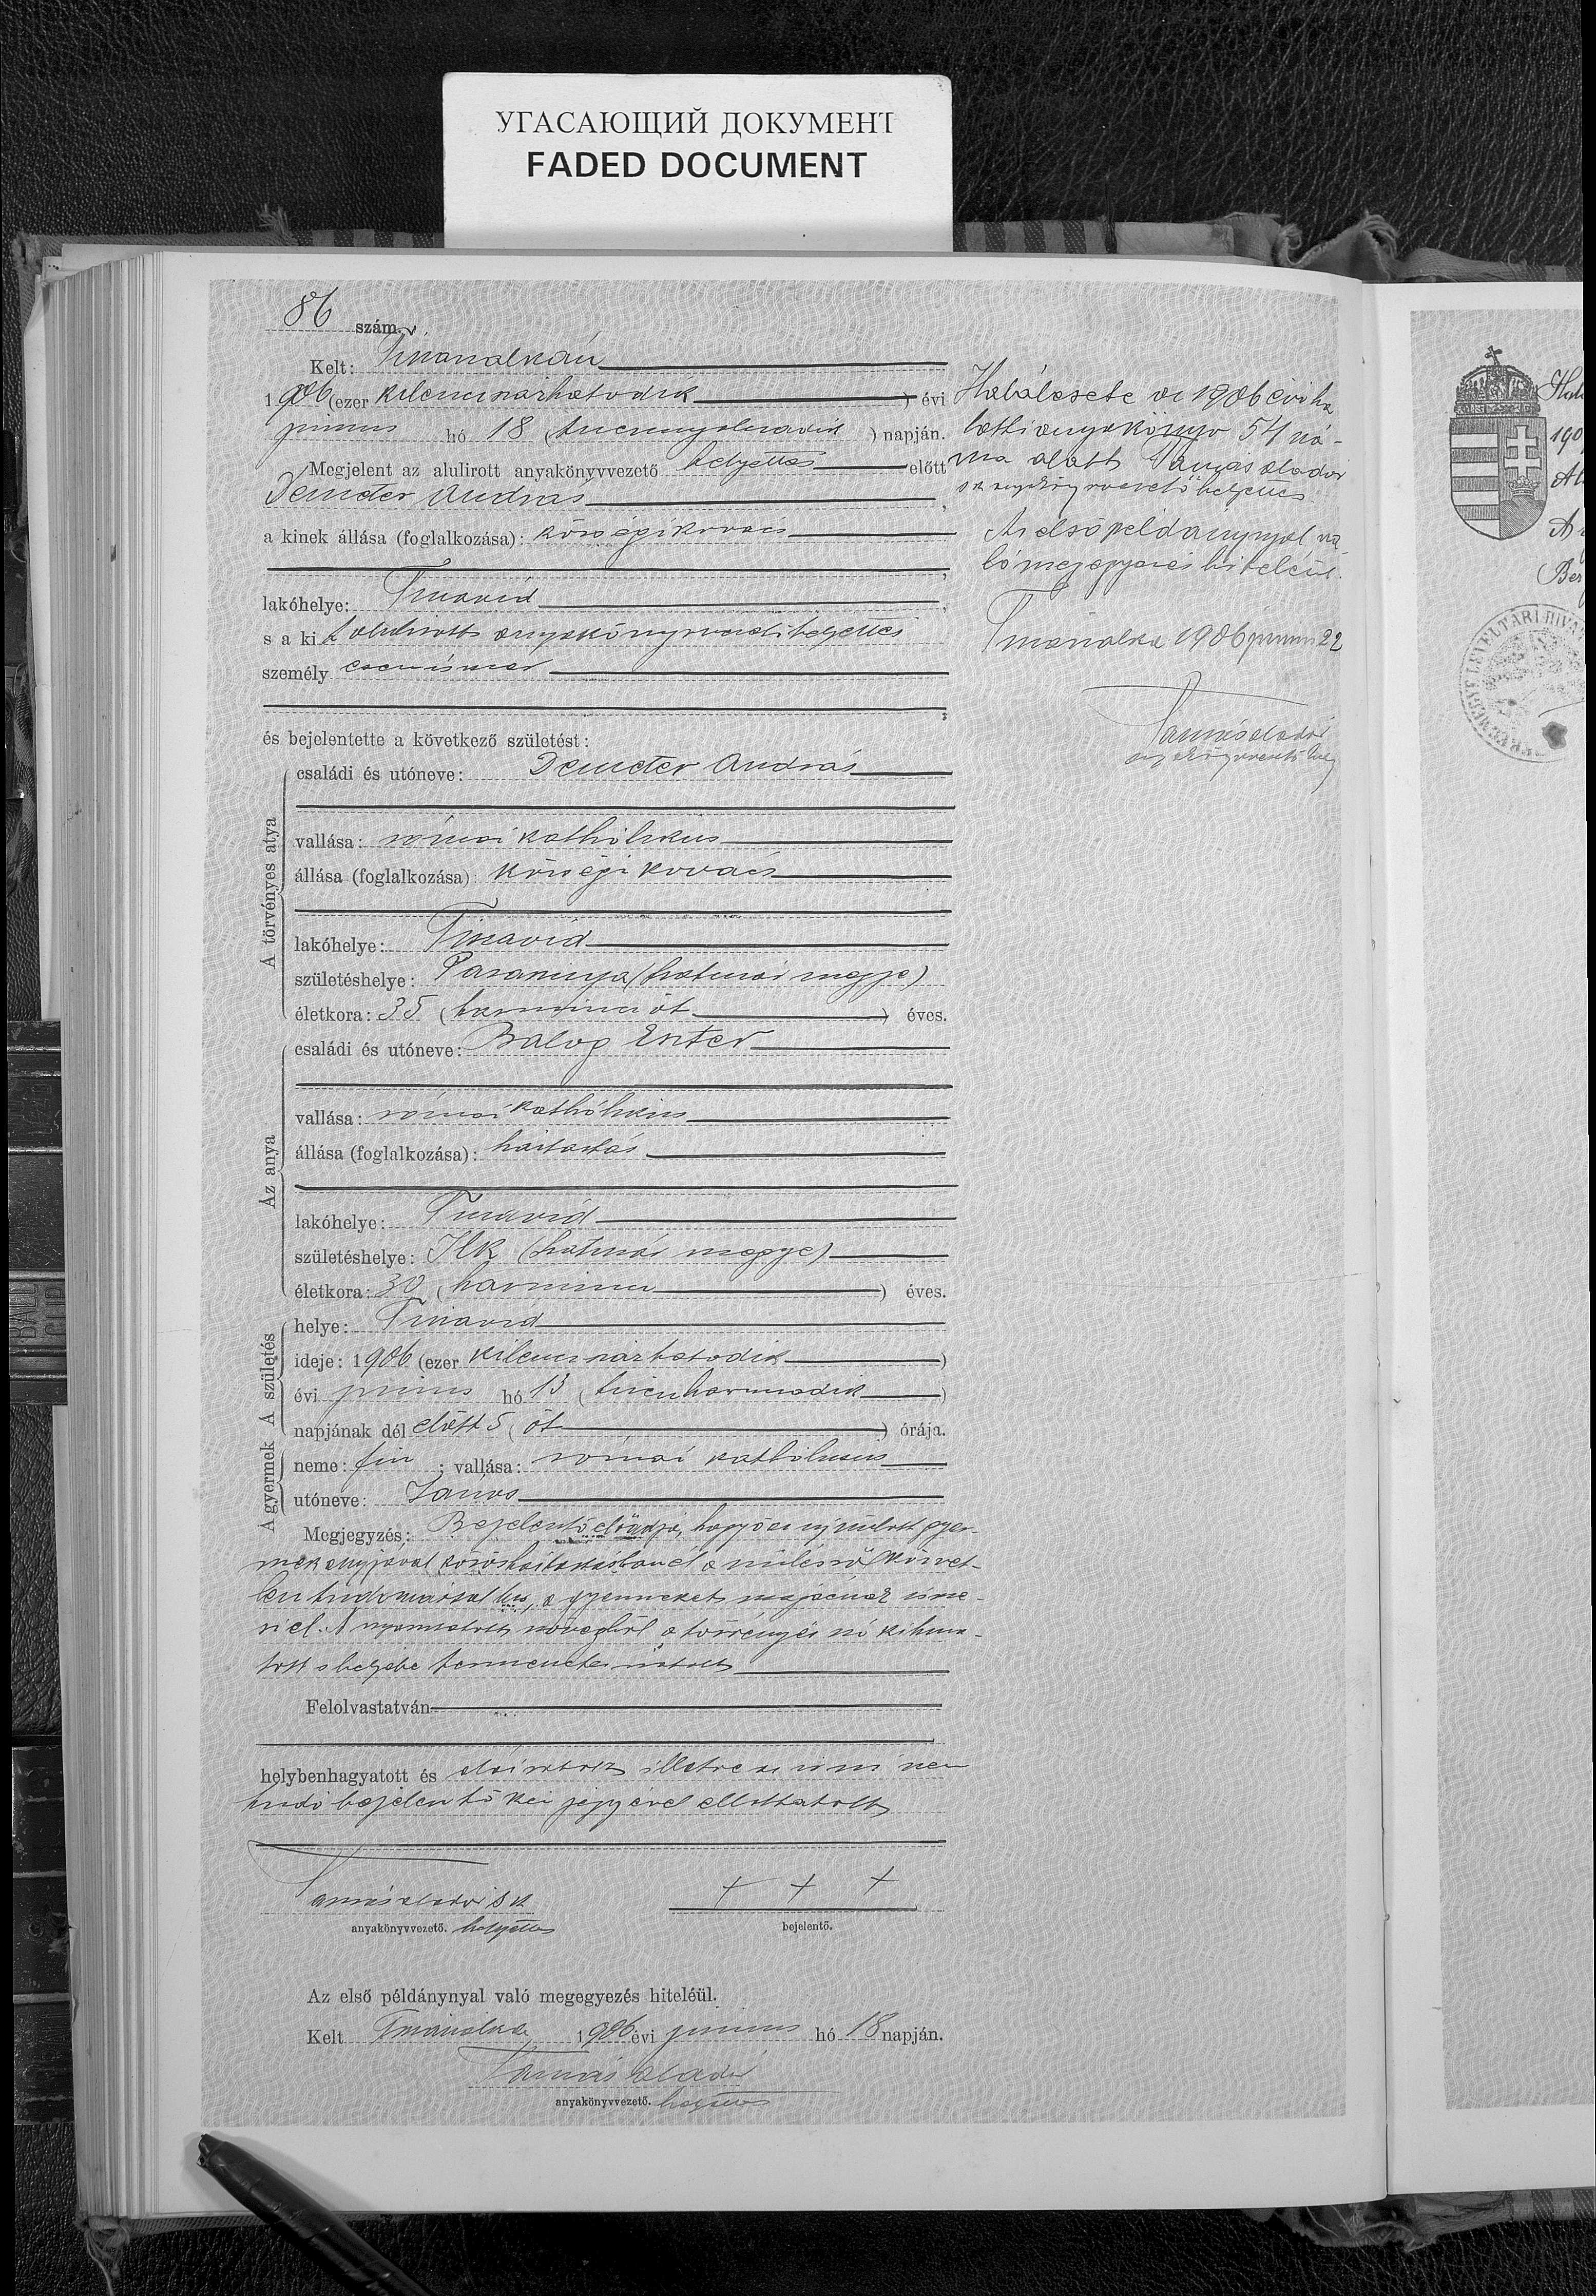 УГАСАЮЩИЙ ДОКУМЕНТ
FADED DOCUMENT
86 szám.
Kelt: Tiszamálkán
1906 (ezer kilencszázhatodik) évi
junius hó 18 (tizennyolcadik) napján.
Megjelent az alulirott anyakönyvvezető helyettes előtt
Demeter András,
a kinek állása (foglalkozása): községi kovács
lakóhelye: Tiszavid,
s a kit alulirott anyakönyvvezető helyettes
személy
és bejelentette a következő születést:
A törvényes atya
családi és utóneve: Demeter András
vallása: római katholikus
állása (foglalkozása): községi kovács
lakóhelye: Tiszavid
születéshelye: (szatmár megye)
életkora: 35 (harminc öt) éves.
Az anya
családi és utóneve: Balog Eszter
vallása: római katholikus
állása (foglalkozása): háztartás
lakóhelye: Tiszavid
születéshelye: Ilk (szatmár megye)
életkora: 30 (harminc) éves.
A születés
helye: Tiszavid
ideje: 1906 (ezer kilencszázhatodik)
évi junius hó 13 (tizenharmadik)
napjának dél előtt 5 (öt) órája.
A gyermek
neme: fiu; vallása: római katholikus
utóneve: János
Megjegyzés: Bejelentő előadja, hogy az ujszülött gyer-
mek anyjával közös háztartásban él a szülésről közvet-
len tudomással bir, a gyermeket magáénak isme-
ri el. A nyomtatott szövegből a törvényes szó kihuza-
tott s helyébe természetes iratott
Felolvastatván
helybenhagyatott és aláiratott, illetve az irni nem
tudó bejelentő kéz jegyével elláttatott
Tamás Aladár sk
+ + +
anyakönyvvezető. helyettes
bejelentő.
Az első példánynyal való megegyezés hiteléül.
Kelt 1906 évi junius hó 18 napján.
Tamás Aladár
anyakönyvvezető. helyettes
Halálesete az 1906 évi ha
lotti anyakönyv 54 szá-
ma alatt Tamás Aladár
sk anyakönyvvezető helyettes
Az első példánynyal va-
ló megegyezés hiteléül.
1906 junius 22
Tamás Aladár
anyakönyvvezető hely